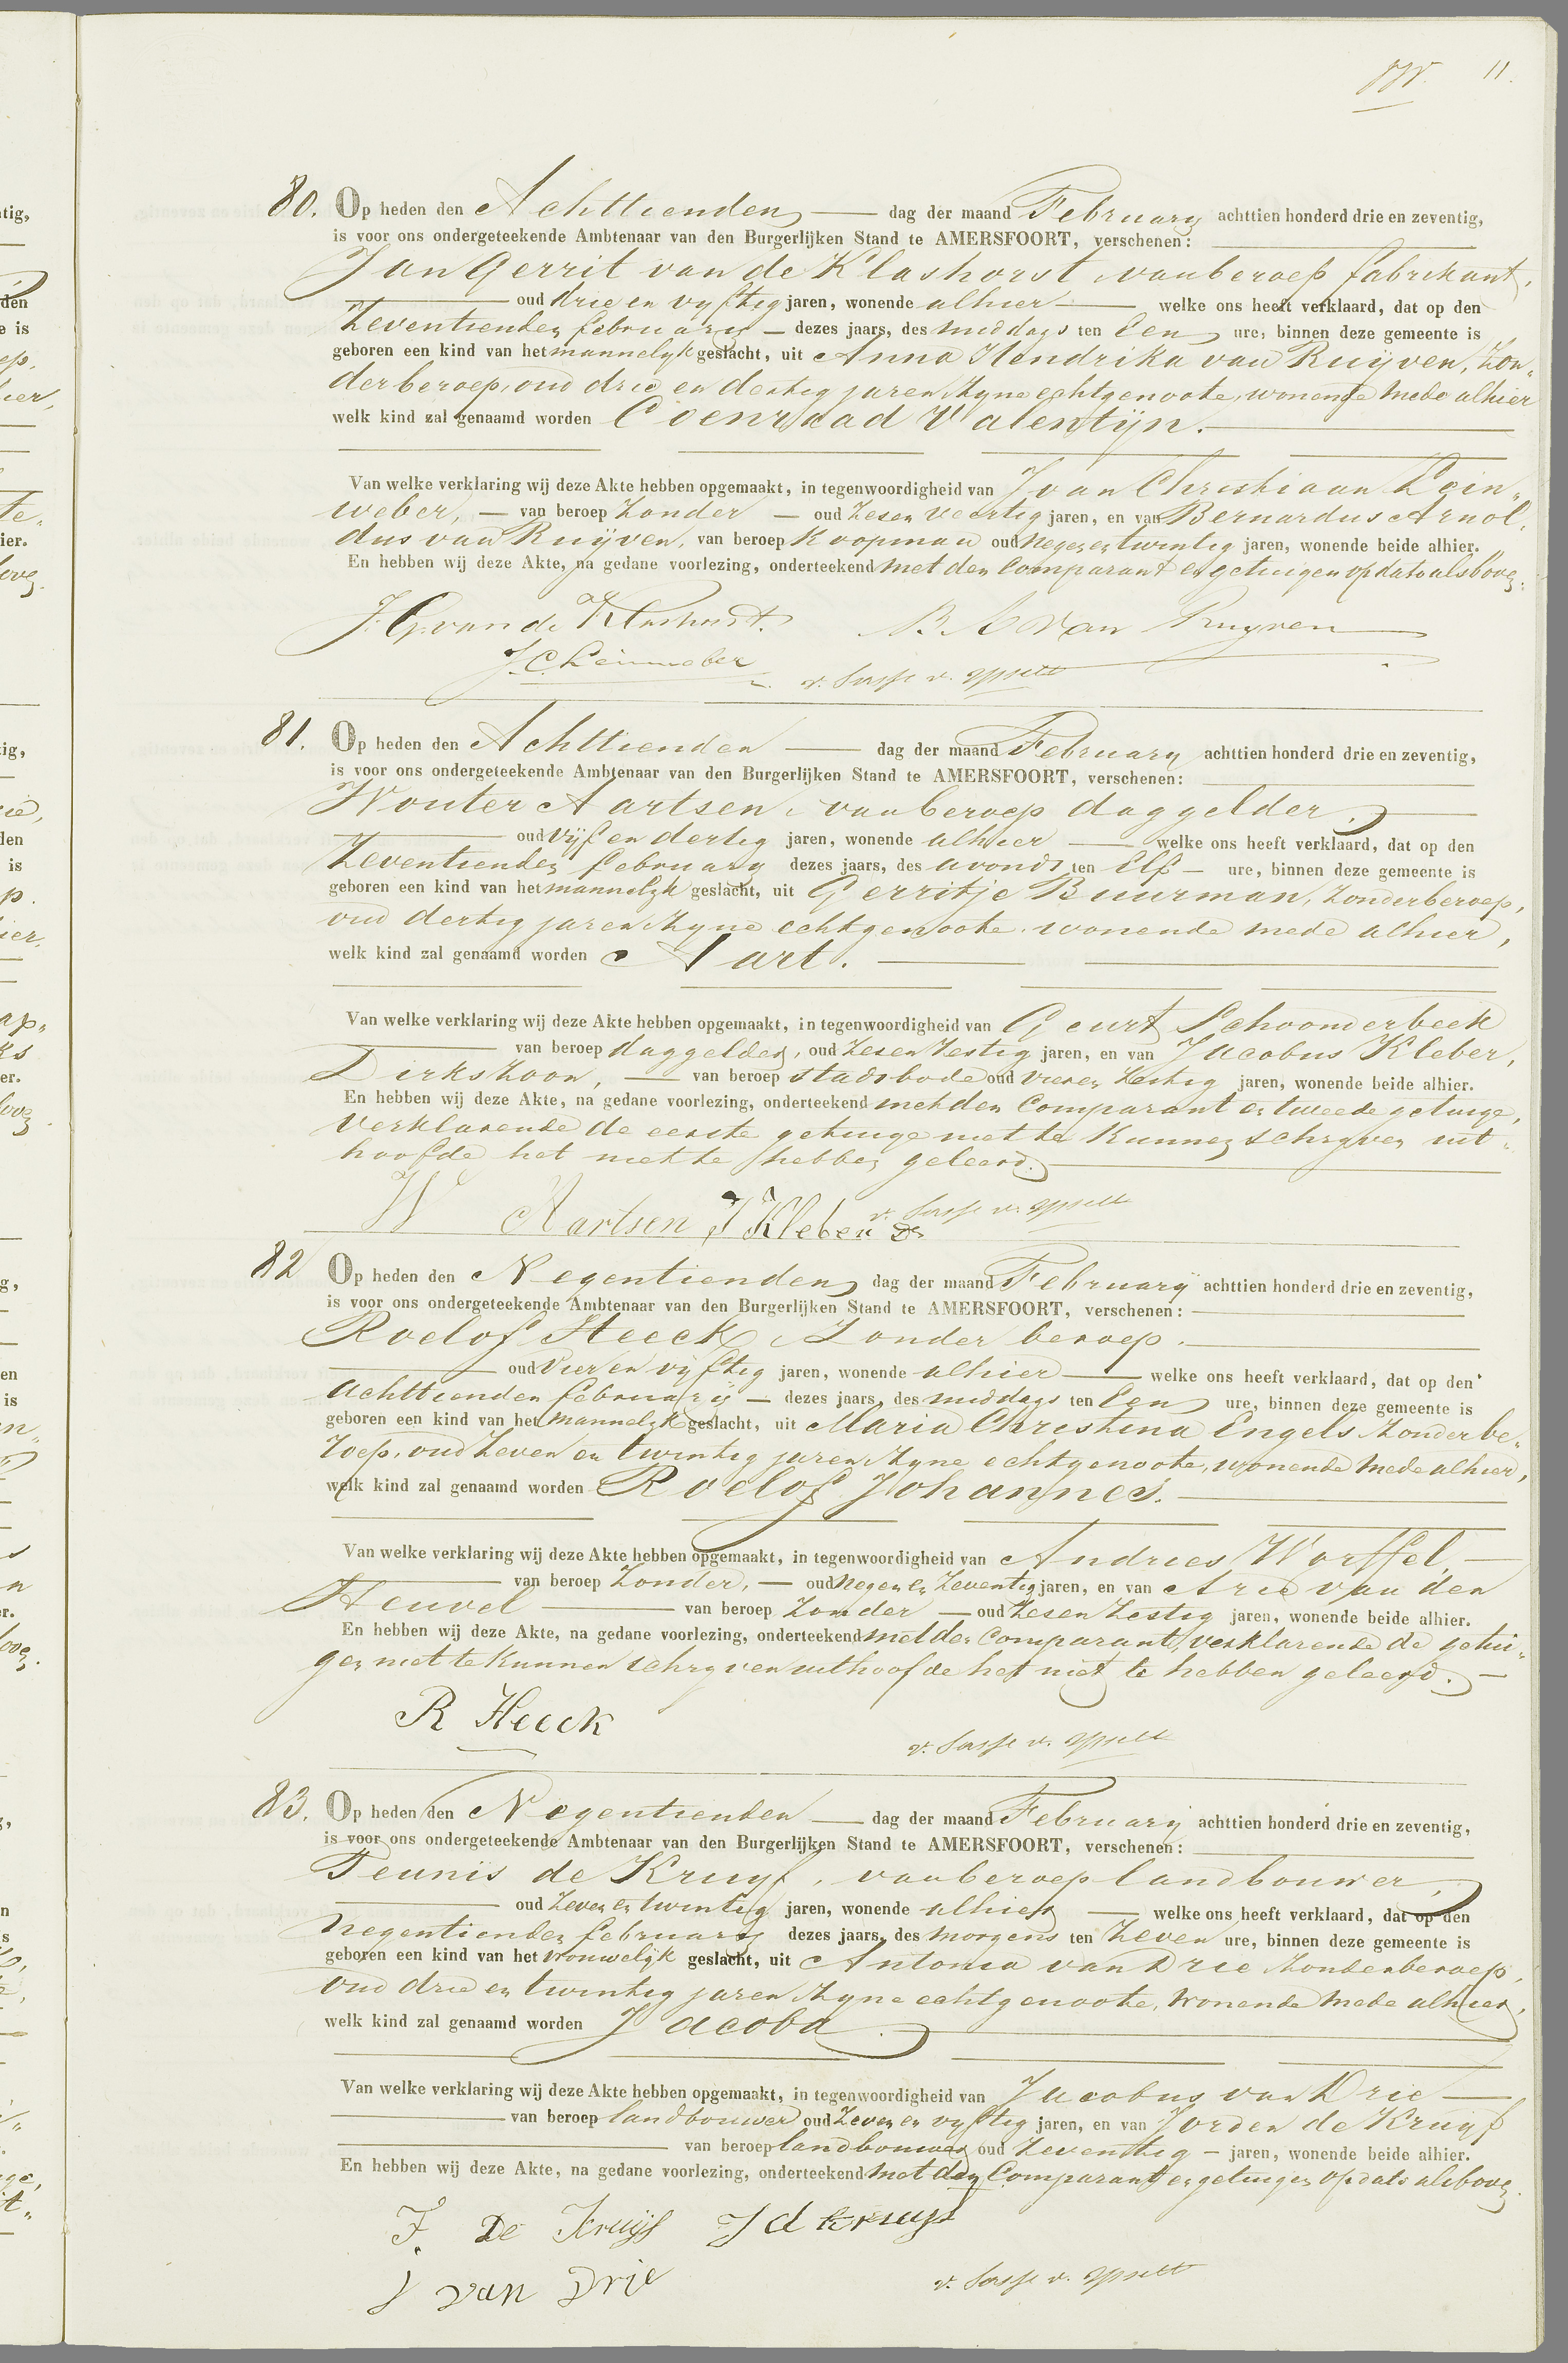 11.
80. Op heden den Achttienden dag der maand February achttien honderd drie en zeventig,
is voor ons ondergeteekende Ambtenaar van den Burgerlijken Stand te AMERSFOORT, verschenen:
Jan Gerrit van de Klashorst, van beroep fabrikant,
oud drie en vyftig jaren, wonende alhier welke ons heeft verklaard, dat op den
Zeventienden february dezes jaars, des middags ten Een ure, binnen deze gemeente is
geboren een kind van het mannelyk geslacht, uit Anna Hendrika van Ruijven, Zon„
der beroep, oud drie en dertig jaren Zyne echtgenoote, wonende mede alhier
welk kind zal genaamd worden Coenraad Valentijn.
Van welke verklaring wij deze Akte hebben opgemaakt, in tegenwoordigheid van Johan Christiaan Lein„
weber, van beroep Zonder oud Zes en Veertig jaren, en van Bernardus Arnol„
dus van Ruijven, van beroep Koopman oud negen en twintig jaren, wonende beide alhier.
En hebben wij deze Akte, na gedane voorlezing, onderteekend met den Comparant en getuigen op dato als boven.
J. G. van de Klashorst. B. A. van Ruyven
J. C. Leinweber v. Sasse v. Ysselt
81. Op heden den Achttienden dag der maand February achttien honderd drie en zeventig,
is voor ons ondergeteekende Ambtenaar van den Burgerlijken Stand te AMERSFOORT, verschenen:
Wouter Aartsen, van beroep daggelder,
oud Vijf en dertig jaren, wonende alhier welke ons heeft verklaard, dat op den
Zeventienden february dezes jaars, des avonds ten Elf ure, binnen deze gemeente is
geboren een kind van het mannelyk geslacht, uit Gerritje Buurman, Zonder beroep,
oud dertig jaren Zyne echtgenoote, wonende mede alhier,
welk kind zal genaamd worden Aart.
Van welke verklaring wij deze Akte hebben opgemaakt, in tegenwoordigheid van Geurt Schoonderbeek
van beroep daggelder, oud Zes en Zestig jaren, en van Jacobus Kleber,
Dirkszoon, van beroep stadsbode oud vier en Zestig jaren, wonende beide alhier.
En hebben wij deze Akte, na gedane voorlezing, onderteekend met den Comparant en tweede getuige,
Verklarende de eerste getuige niet te Kunnen schryven uit„
hoofde het niet te hebben geleerd.
W Aartsen J Kleber Dz v. Sasse v. Ysselt
82 Op heden den Negentienden dag der maand February achttien honderd drie en zeventig,
is voor ons ondergeteekende Ambtenaar van den Burgerlijken Stand te AMERSFOORT, verschenen:
Roelof Heeck, Zonder beroep,
oud Vier en vyftig jaren, wonende alhier welke ons heeft verklaard, dat op den
Achttienden february dezes jaars, des middags ten Een ure, binnen deze gemeente is
geboren een kind van het mannelyk geslacht, uit Maria Christina Engels Zonder be„
roep, oud Zeven en twintig jaren Zyne echtgenoote, wonende mede alhier,
welk kind zal genaamd worden Roelof Johannes.
Van welke verklaring wij deze Akte hebben opgemaakt, in tegenwoordigheid van Andries Worffel,
van beroep Zonder, oud negen en Zeventig jaren, en van Arie van den
Heuvel van beroep Zonder oud Zes en Zestig jaren, wonende beide alhier.
En hebben wij deze Akte, na gedane voorlezing, onderteekend met den Comparant, verklarende de getui„
gen niet te Kunnen schryven uithoofde het niet te hebben geleerd.
R Heeck
v. Sasse v. Ysselt
83. Op heden den Negentienden dag der maand February achttien honderd drie en zeventig,
is voor ons ondergeteekende Ambtenaar van den Burgerlijken Stand te AMERSFOORT, verschenen:
Teunis de Kruyf, van beroep landbouwer,
oud Zeven en twintig jaren, wonende alhier welke ons heeft verklaard, dat op den
negentienden february dezes jaars, des morgens ten Zeven ure, binnen deze gemeente is
geboren een kind van het vrouwelyk geslacht, uit Antonia van Drie Zonder beroep,
oud drie en twintig jaren Zyne echtgenoote, wonende mede alhier,
welk kind zal genaamd worden Jacoba.
Van welke verklaring wij deze Akte hebben opgemaakt, in tegenwoordigheid van Jacobus van Drie
van beroep landbouwer oud Zeven en vyftig jaren, en van Jorden de Kruyf
van beroep landbouwer oud Zeventig jaren, wonende beide alhier.
En hebben wij deze Akte, na gedane voorlezing, onderteekend met den Comparant en getuigen op dato als boven.
T. De Kruijf J d Kruyf
J van Drie v. Sasse v. Ysselt